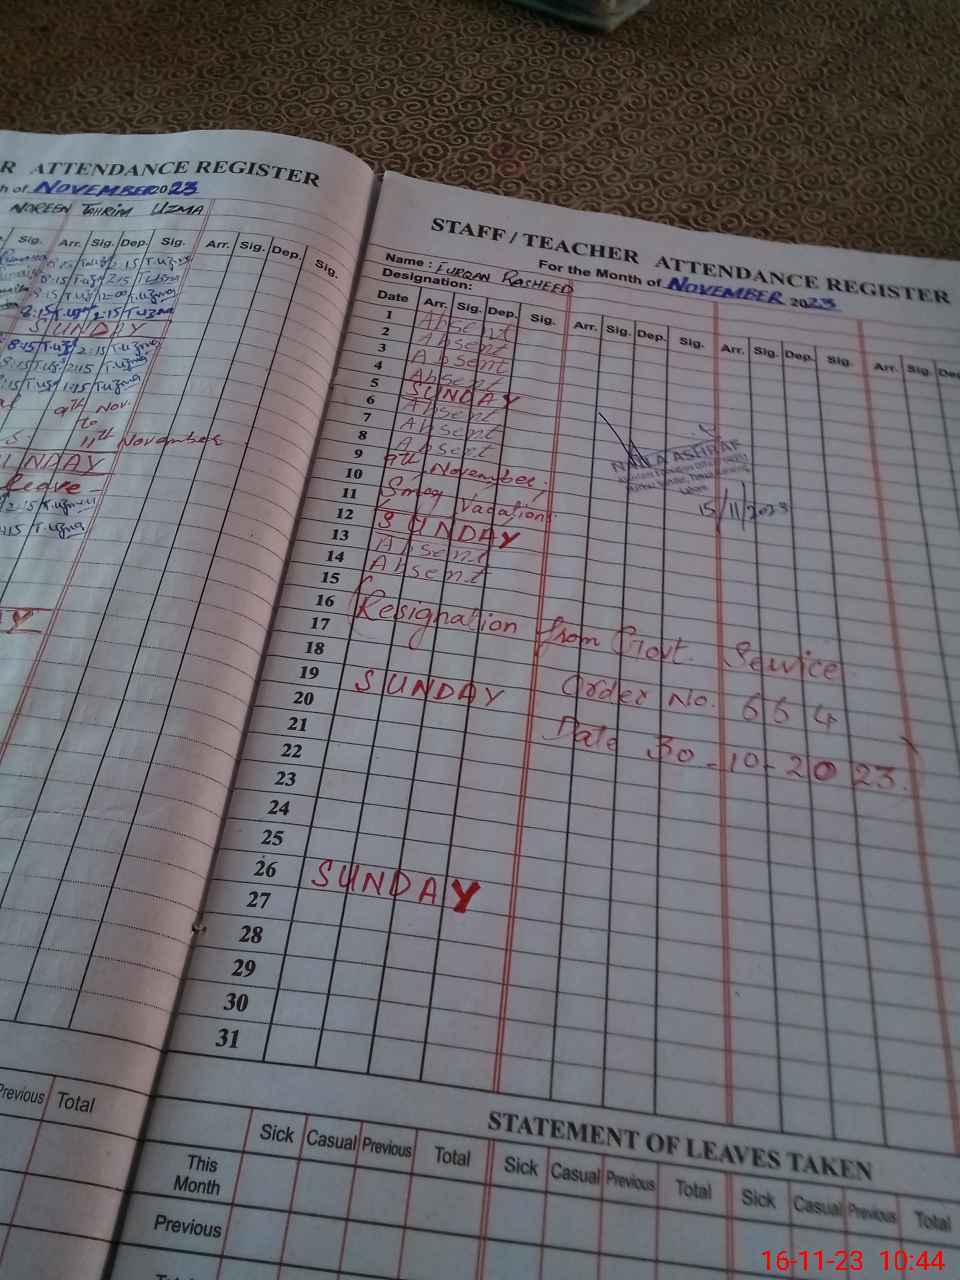 R ATTENDANCE REGISTER
h of NOVEMBER 2023
NOREEN TAHRIM UZMA
Sig. Arr. Sig. Dep. Sig. Arr. Sig. Dep. Sig.
8:15 T.uz 2:15 T.uzma
8:15 T.uz 2:15 T.uzma
8:15 T.uz 12=00 T.uzma
8:15 T.uz 2:15 T.uzma
SUNDAY
8:15 T.uz 2:15 T.uzma
8:15 T.uz 2:15 T.uzma
T.uz 1:15 T.uzma
9th Nov.
to
11th November
leave
2:15 T.uzma
T.uzma
Y
Previous Total
STAFF / TEACHER ATTENDANCE REGISTER
Name : FURQAN RASHEED For the Month of NOVEMBER 2023
Designation:
Date Arr. Sig. Dep. Sig. Arr. Sig. Dep. Sig. Arr. Sig. Dep. Sig. Arr. Sig. Dep
1 Absent
2 Absent
3 Absent
4 Absent
5 SUNDAY
6 Absent
7 Absent
8 Absent
9 9th November.
10
11 Smog Vacation.
12 SUNDAY
13 Absent
14 Absent
15
16 Resignation from Govt. Service.
17
18 Order No. 664
19 SUNDAY
20 Date 30-10-2023.
21
22
23
24
25
26 SUNDAY
27
28
29
30
31
ASHRAF
Lahore
15/11/2023
STATEMENT OF LEAVES TAKEN
Sick Casual Previous Total Sick Casual Previous Total Sick Casual Previous Total
This Month
Previous
16-11-23 10:44